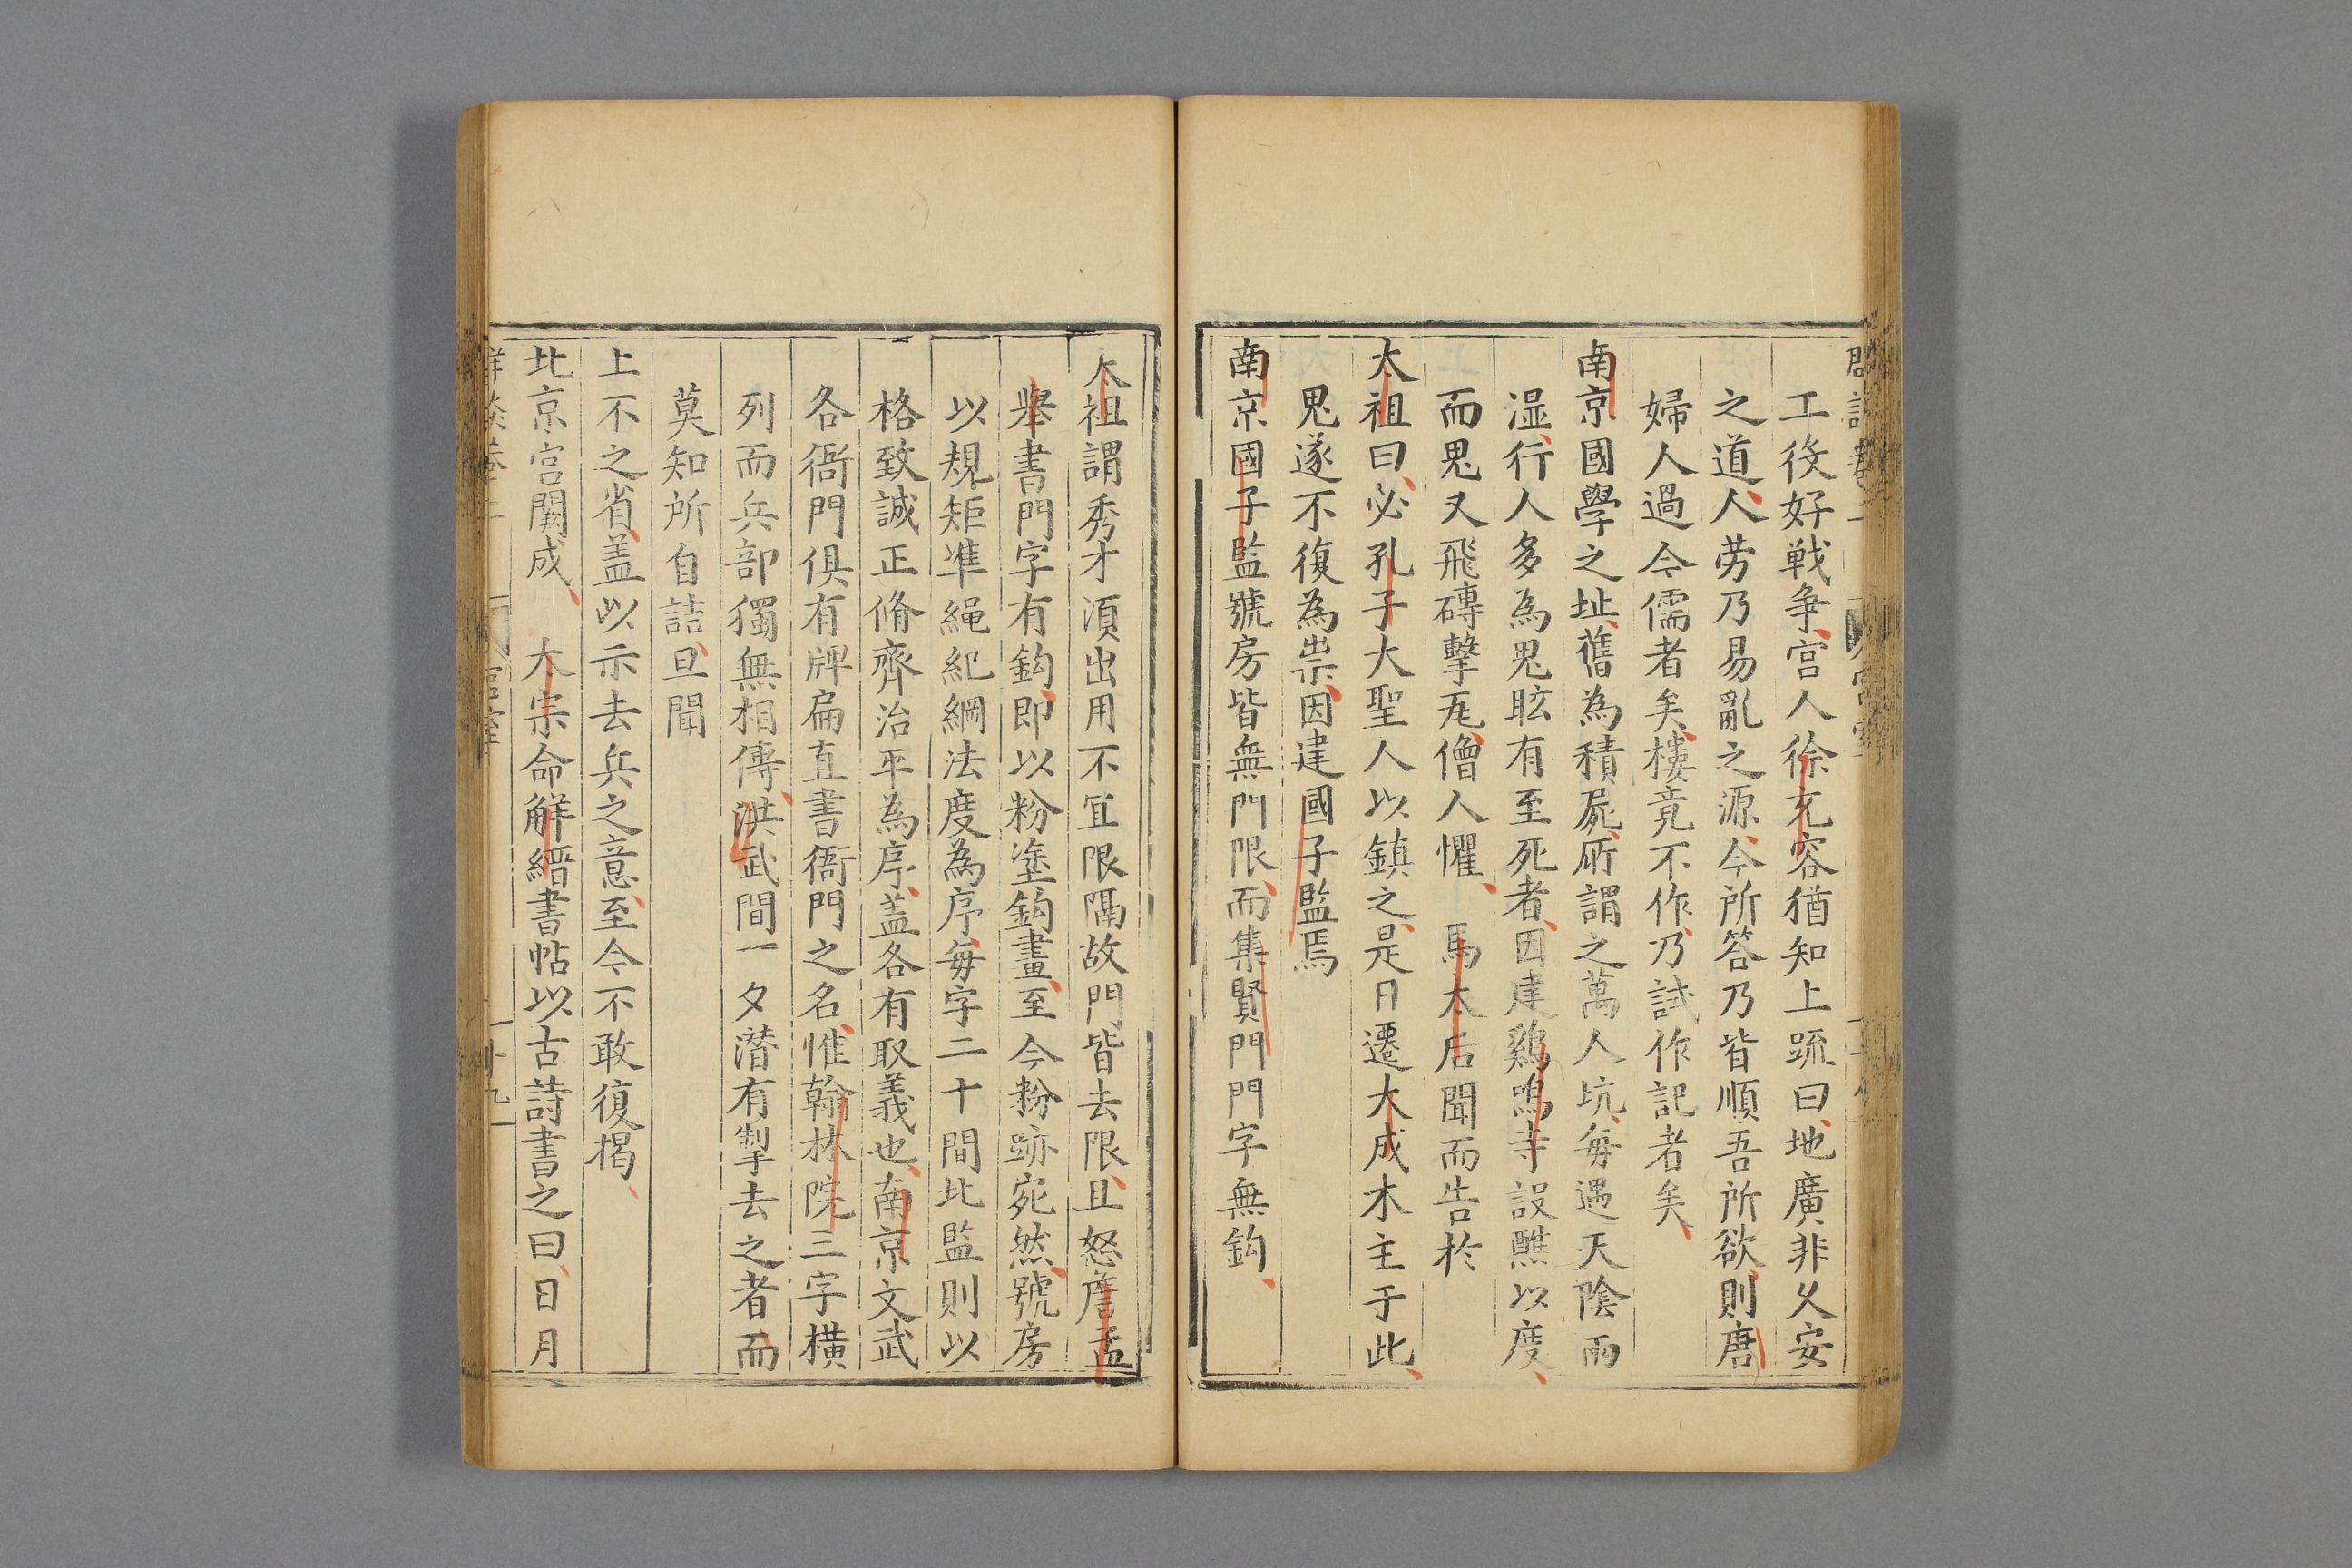 工役好戦争宫人徐充容猶知上疏曰地廣非乆安
之道人劳乃易亂之源今所答乃皆順吾所欲則唐
婦人過今儒者矣樓竟不作乃試作記者矣
南京國學之址舊為積屍所謂之萬人坑每遇天陰雨
湿行人多為鬼眩有至死者因建鷄鳴寺設醮以度
而鬼又飛磚擊瓦僧人懼 馬太后聞而告於
太祖曰必孔子大聖人以鎮之是日遷大成木主于此
鬼遂不復為祟因建國子監焉
南京國子監號房皆無門限而集賢門門字無鈎
太祖謂秀才湏出用不宜限隔故門皆去限且怒詹孟
舉書門字有鈎即以粉塗鈎畫至今粉跡宛然號房
以規矩準繩紀綱法度為序每字二十間北監則以
格致誠正脩齊治平為序盖各有取義也南京文武
各衙門俱有牌扁直書衙門之名惟翰林院三字横
列而兵部獨無相傳洪武間一夕潜有掣去之者而
莫知所自詰旦聞
上不之省盖以示去兵之意至今不敢復揭
北京宫闕成 太宗命解縉書帖以古詩書之曰日月
宫室
十九